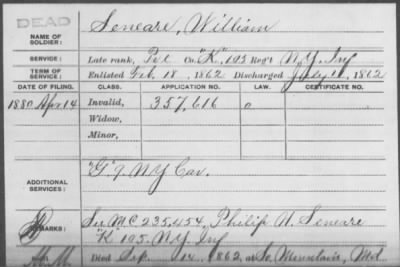 DEAD
NAME OF SOLDIER:
Seneare, William
SERVICE:
Late rank, Pvt Co. "K", 105 Reg't N.Y. Inf
TERM OF SERVICE:
Enlisted Feb. 18, 1862 Discharged July 1, 1862
DATE OF FILING. CLASS. APPLICATION NO. LAW. CERTIFICATE NO.
1880 Apr. 14 Invalid, 357,616
Widow,
Minor,
ADDITIONAL SERVICES:
"G" 9 N Y Cav.
REMARKS:
See M C 235,454, Philip A. Seneare
"K" 105 N.Y. Inf
Died Sep. 14, 1862, at So. Mountain, Md